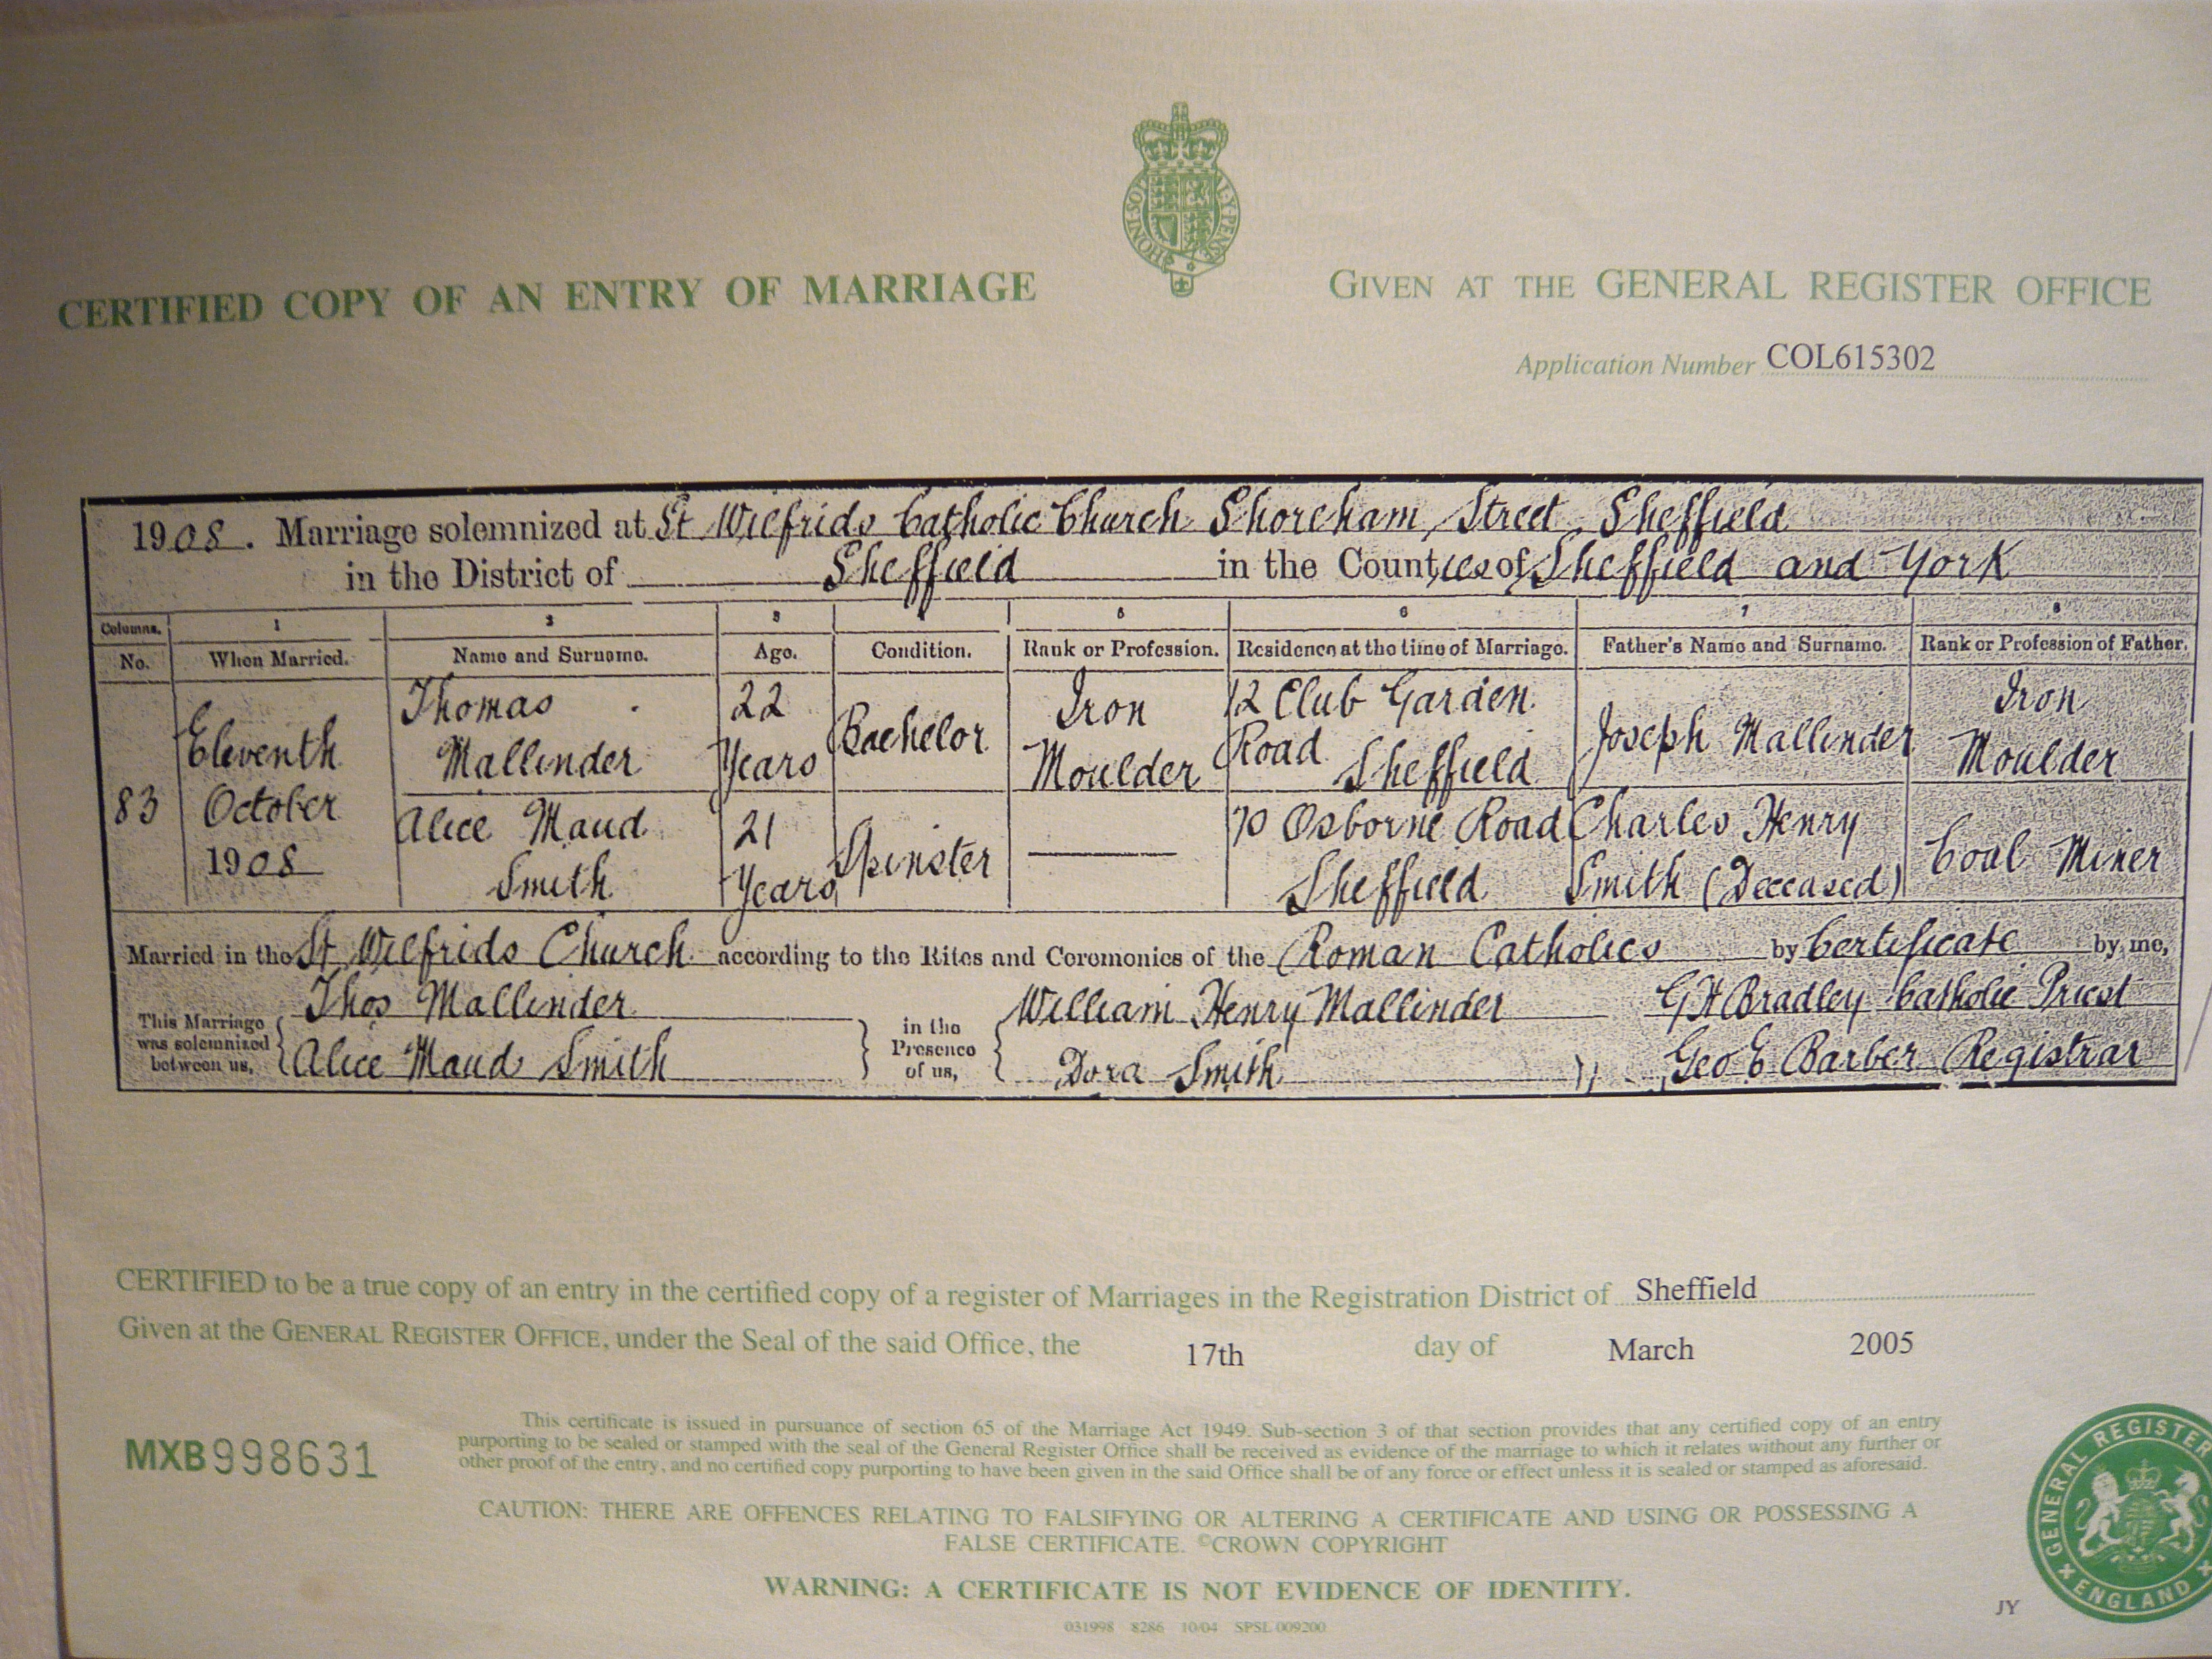 HONI SOI
Y PENSE
CERTIFIED COPY OF AN ENTRY OF MARRIAGE
GIVEN AT THE GENERAL REGISTER OFFICE
Application Number COL615302
1908. Marriage solemnized at St Wilfrids Catholic Church Shoreham Street Sheffield
in the District of Sheffield in the Counties of Sheffield and York
Columns. 1 2 3 4 5 6 7 8
No. When Married. Name and Surname. Age. Condition. Rank or Profession. Residence at the time of Marriage. Father's Name and Surname. Rank or Profession of Father.
83
Eleventh
October
1908
Thomas
Mallinder
22
Years
Bachelor
Iron
Moulder
12 Club Garden
Road Sheffield
Joseph Mallinder
Iron
Moulder
Alice Maud
Smith
21
Years
Spinster
70 Osborne Road
Sheffield
Charles Henry
Smith (Deceased)
Coal Miner
Married in the St Wilfrids Church according to the Rites and Ceremonies of the Roman Catholics by Certificate by me,
This Marriage
was solemnized
between us,
Thos Mallinder
Alice Maud Smith
in the
Presence
of us,
William Henry Mallinder
Dora Smith
G H Bradley Catholic Priest
Geo E Barber Registrar
CERTIFIED to be a true copy of an entry in the certified copy of a register of Marriages in the Registration District of Sheffield
Given at the GENERAL REGISTER OFFICE, under the Seal of the said Office, the 17th day of March 2005
MXB998631
This certificate is issued in pursuance of section 65 of the Marriage Act 1949. Sub-section 3 of that section provides that any certified copy of an entry
purporting to be sealed or stamped with the seal of the General Register Office shall be received as evidence of the marriage to which it relates without any further or
other proof of the entry, and no certified copy purporting to have been given in the said Office shall be of any force or effect unless it is sealed or stamped as aforesaid.
CAUTION: THERE ARE OFFENCES RELATING TO FALSIFYING OR ALTERING A CERTIFICATE AND USING OR POSSESSING A
FALSE CERTIFICATE. ©CROWN COPYRIGHT
WARNING: A CERTIFICATE IS NOT EVIDENCE OF IDENTITY.
031998 8286 10/04 SPSL 009200
JY
GENERAL REGISTER
ENGLAND